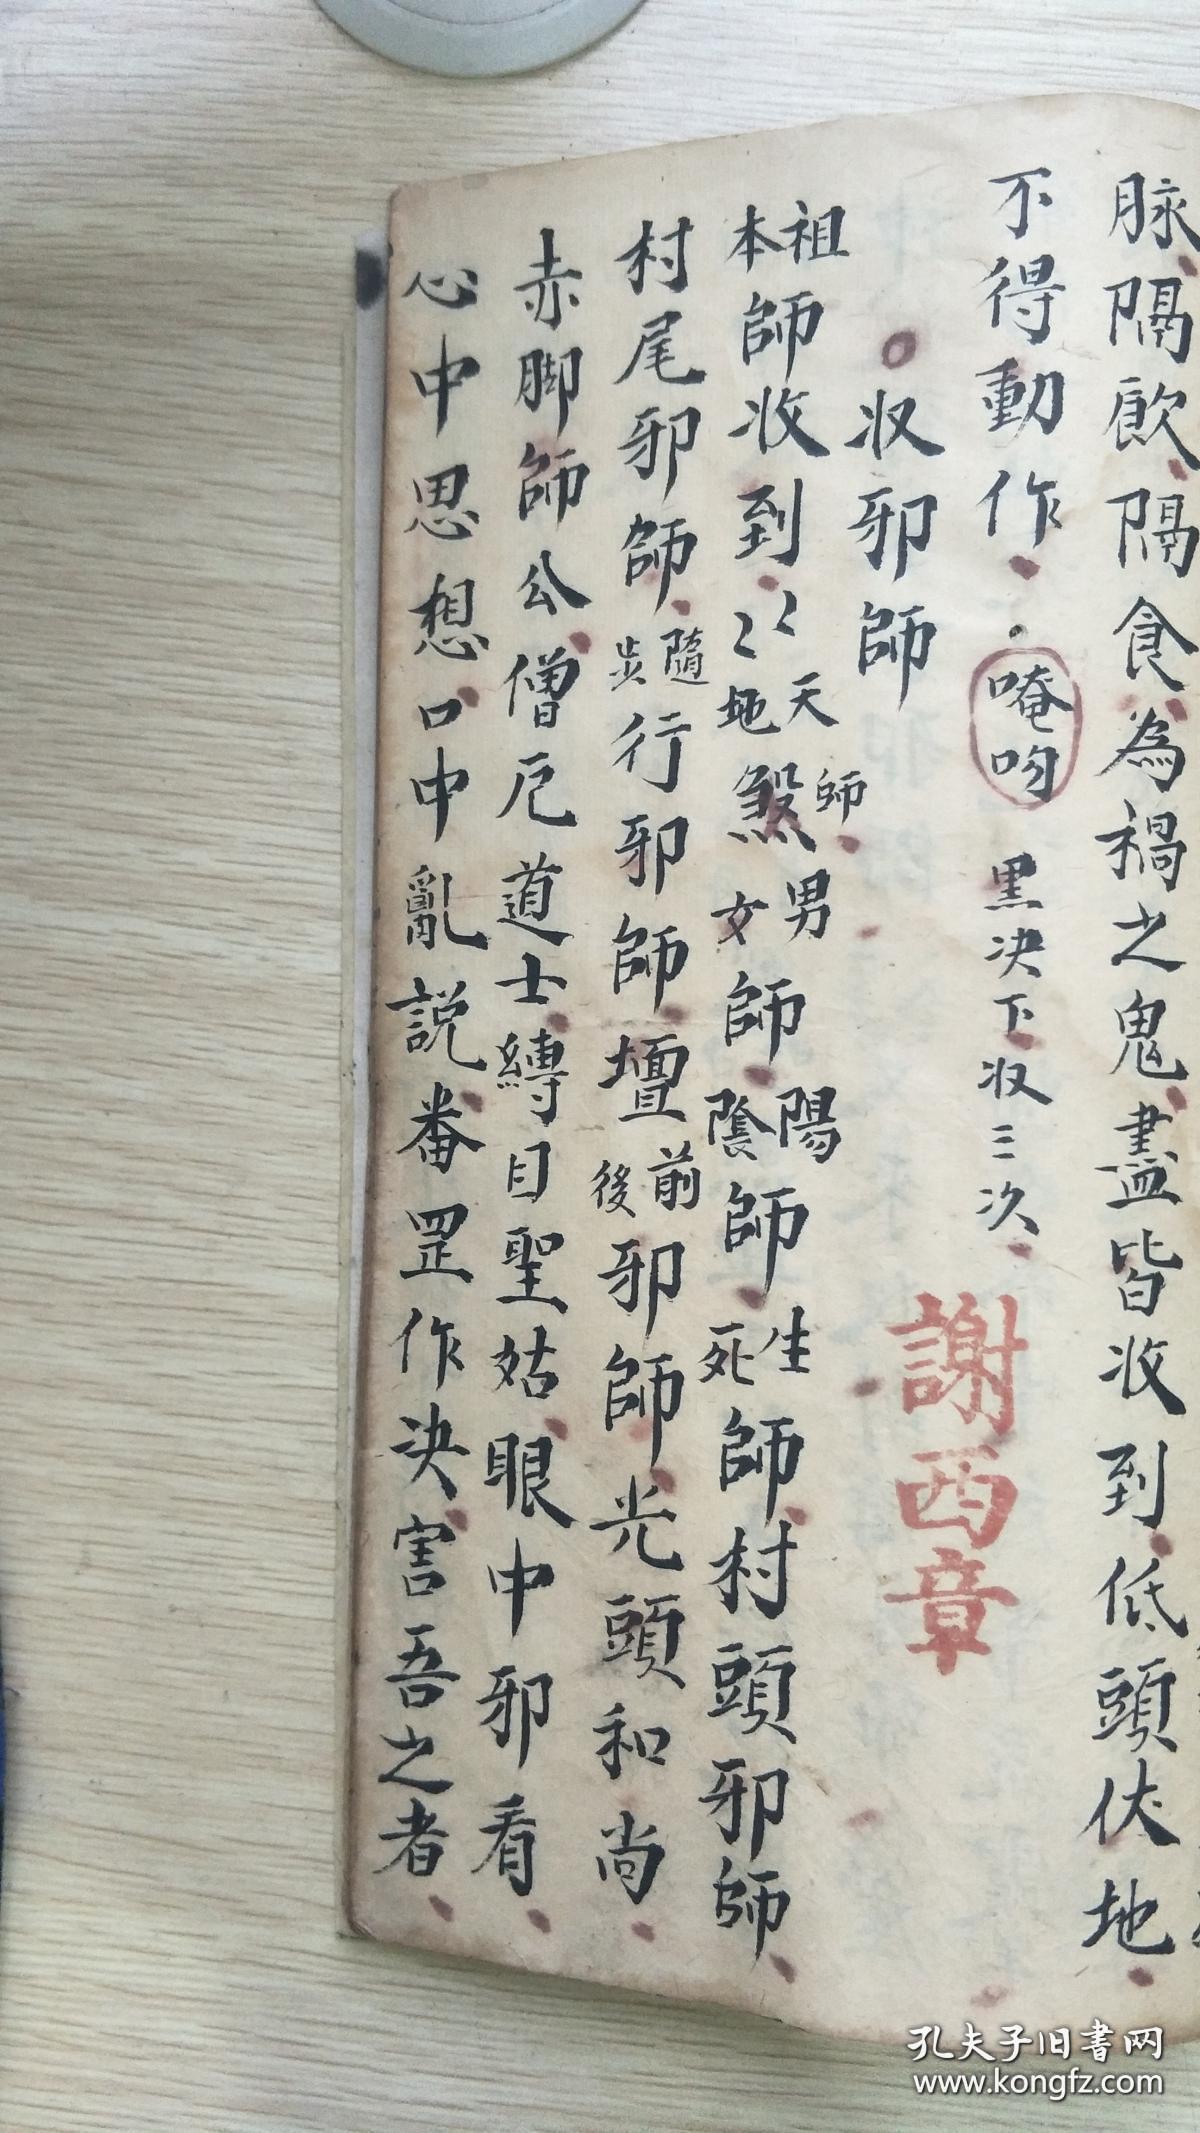 脉隔飲隔食為禍之鬼盡皆收到低頭伏地
不得動作唵吻黑决下収三次
収邪師
謝西章
祖本師收到〻〻天地煞師男女師陽陰師生死師村頭邪師
村尾邪師隨步行邪師壇前後邪師光頭和尚
赤脚師公僧尼道士縛目聖姑眼中邪看
心中思想口中亂説番罡作决害吾之者
孔夫子旧书网
www.kongfz.com